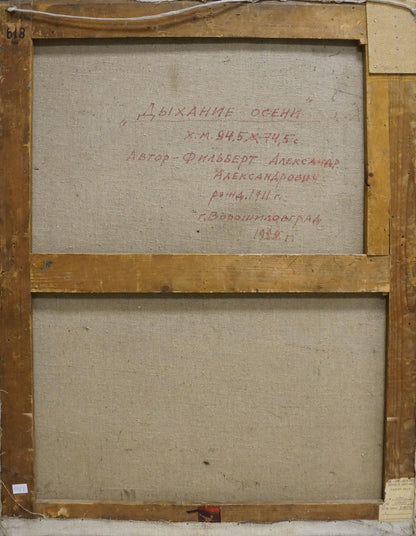 618
„Дыхание осени"
х.м. 94,5 х 74,5 с
Автор - Фильберт Александр
Александрович
рожд. 1911 г.
г. Ворошиловград
г.